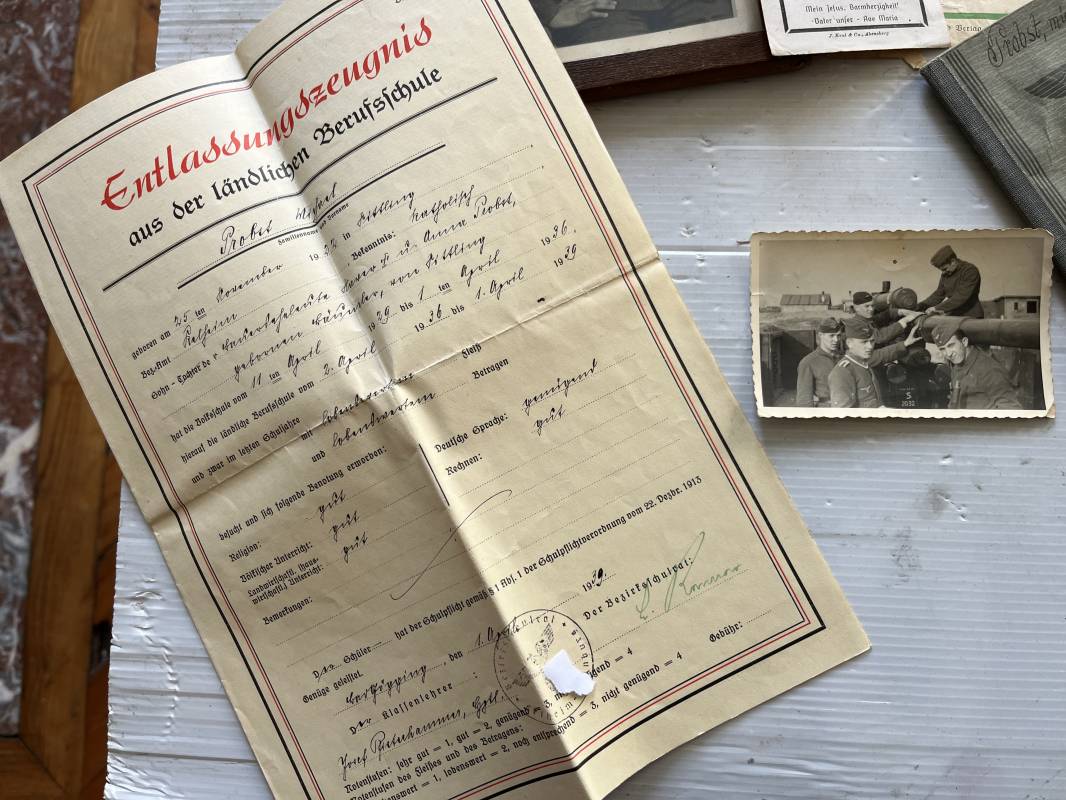 Entlassungszeugnis
aus der ländlichen Berufsschule
Probst Michael
Familienname und Vorname
geboren am 25 ten November 19 in Sittling
Bez.-Amt Kelheim Bekenntnis: katholisch
Sohn - Tochter der Bauerseheleute Xaver u. Anna Probst,
geborenen von Sittling
hat die Volksschule vom 11 ten April 1929 bis 1 ten April 1936,
hierauf die ländliche Berufsschule vom 2. April 1936 bis 1. April 1939
und zwar im letzten Schuljahre mit lobenswertem Fleiß
und lobenswertem Betragen
besucht und sich folgende Benotung erworben:
Religion: gut Deutsche Sprache: genügend
Völkischer Unterricht: gut Rechnen: gut
Landwirtschaftl. (haus-
wirtschaftl.) Unterricht: gut
Bemerkungen:
Der Schüler hat der Schulpflicht gemäß § 1 Abs. 1 der Schulpflichtverordnung vom 22. Dezbr. 1913
Genüge geleistet.
den 1. April 1939.
Der Klassenlehrer:
Der Bezirksschulrat:
Josef
Gebühr:
Notenstufen: sehr gut = 1, gut = 2, genügend = 3, genügend = 4
Notenstufen des Fleißes und des Betragens:
lobenswert = 2, noch entsprechend = 3, nicht genügend = 4
Mein Jesus, Barmherzigkeit!
Vater unser - Ave Maria
Probst,
S
2032